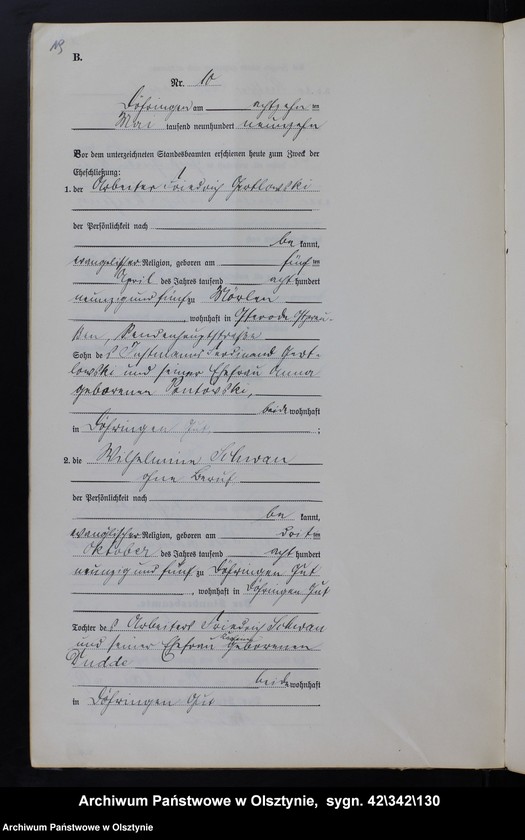 B.
Nr. 10
Döhringen am achtzehn ten
Mai tausend neunhundert neunzehn
Vor dem unterzeichneten Standesbeamten erschienen heute zum Zweck der
Eheschließung:
1. der Arbeiter Friedrich Gertlowski
der Persönlichkeit nach
be kannt,
evangelischer Religion, geboren am fünf ten
April des Jahres tausend acht hundert
neunzig und fünf zu Mörlen
, wohnhaft in Osterode Ostpreu-
ßen,
Sohn des Instmanns Ferdinand Gert-
lowski und seiner Ehefrau Anna
geborenen
beide wohnhaft
in Döhringen Gut ;
2. die Wilhelmine Schwan
ohne Beruf
der Persönlichkeit nach
be kannt,
evanglischer Religion, geboren am ten
Oktober des Jahres tausend acht hundert
neunzig und fünf zu Döhringen Gut
, wohnhaft in Döhringen Gut
Tochter des Arbeiters Friedrich Schwan
und seiner Ehefrau geborenen
Dudde
beide wohnhaft
in Döhringen Gut .
Archiwum Państwowe w Olsztynie, sygn. 42\342\130
Archiwum Państwowe w Olsztynie